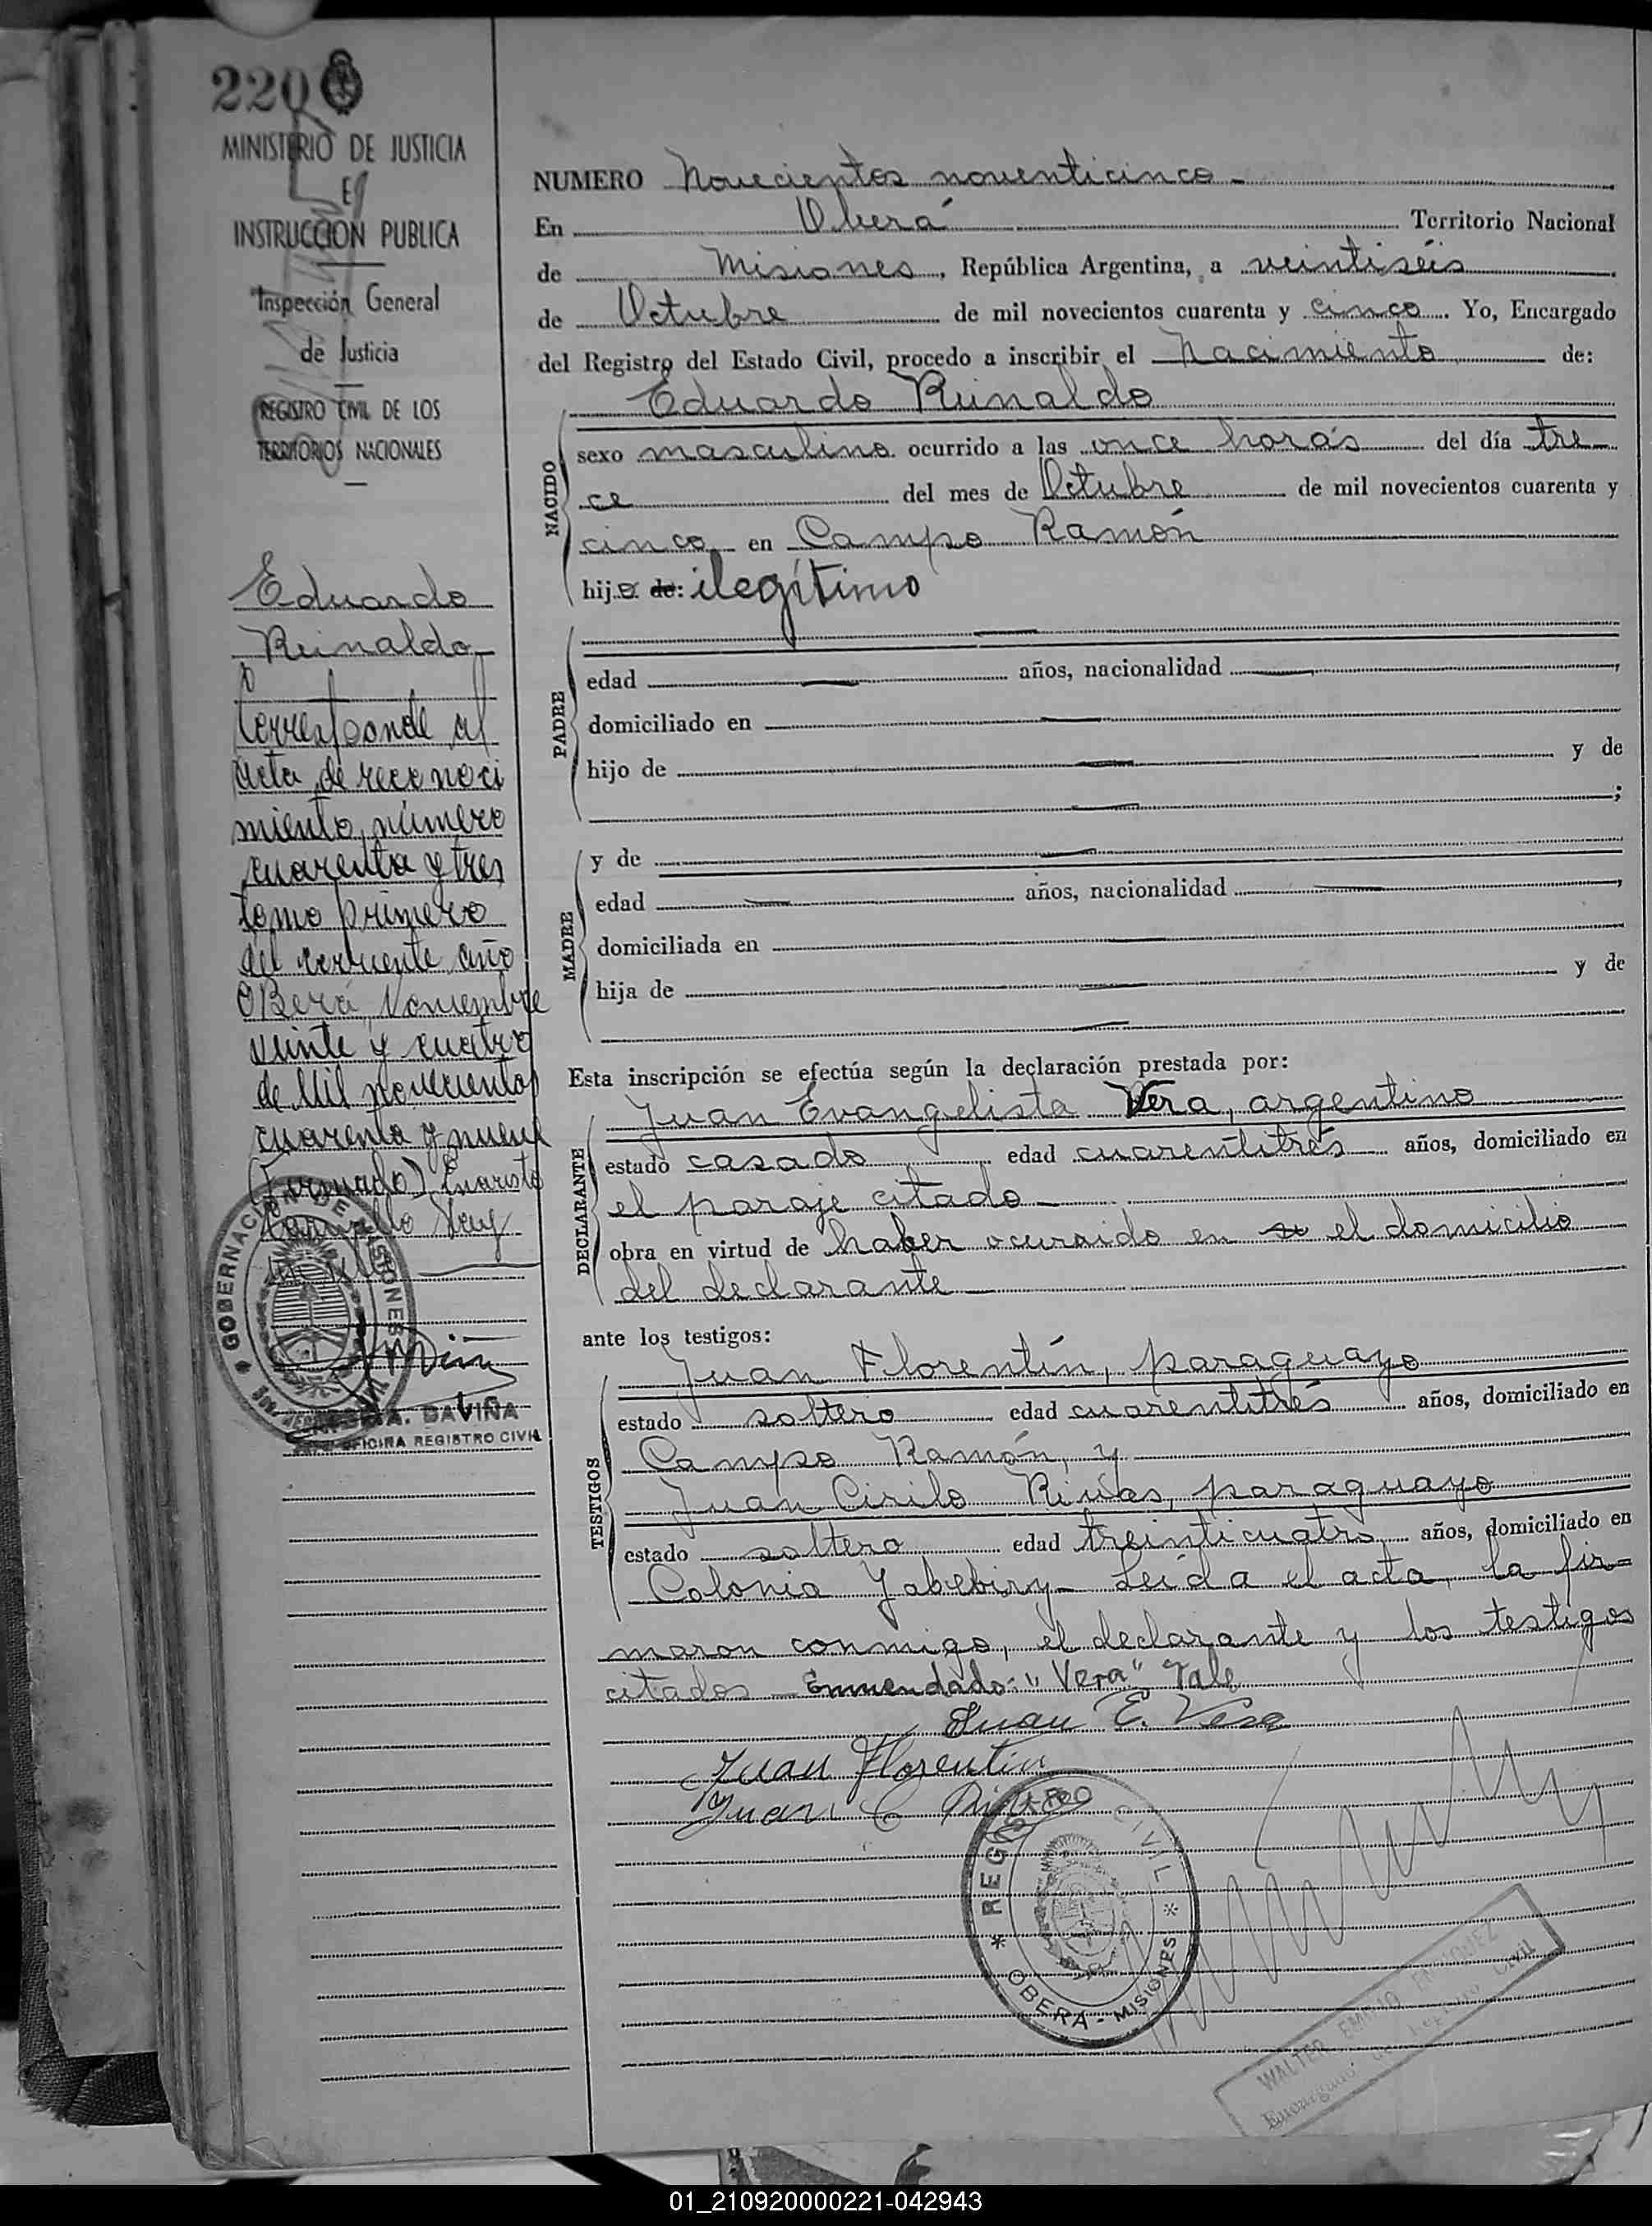 220
MINISTERIO DE JUSTICIA
E
INSTRUCCION PUBLICA
Inspección General
de Justicia
REGISTRO CIVIL DE LOS
TERRITORIOS NACIONALES
Eduardo
Reinaldo
Corresponde al
acta de reconoci
miento, número
cuarenta y tres
tomo primero
del corriente año
OBerá, Noviembre
veinte y cuatro
de Mil novecientos
cuarenta y nueve
(Firmado) Evaristo
GOBERNACION DE MISIONES
A. DAVIÑA
OFICINA REGISTRO CIVIL
NUMERO Novecientos noventicinco
En Oberá Territorio Nacional
de Misiones, República Argentina, a veintiséis
de Octubre de mil novecientos cuarenta y cinco. Yo, Encargado
del Registro del Estado Civil, procedo a inscribir el Nacimiento de:
Eduardo Reinaldo
NACIDO
sexo masculino ocurrido a las once horas del día tre
ce del mes de Octubre de mil novecientos cuarenta y
cinco en Campo Ramón
hijo de: ilegítimo
PADRE
edad años, nacionalidad ,
domiciliado en
hijo de y de
;
MADRE
y de
edad años, nacionalidad ,
domiciliada en
hija de y de
Esta inscripción se efectúa según la declaración prestada por:
DECLARANTE
Juan Evangelista Vera, argentino
estado casado edad cuarentitrés años, domiciliado en
el paraje citado
obra en virtud de haber ocurrido en su el domicilio
del declarante
ante los testigos:
TESTIGOS
Juan Florentín, paraguayo
estado soltero edad cuarentitrés años, domiciliado en
Campo Ramón, y
Juan Cirilo Rivas, paraguayo
estado soltero edad treinticuatro años, domiciliado en
Colonia Yabebiry - Leída el acta, la fir=
maron conmigo, el declarante y los testigos
citados - Enmendado: "Vera" Vale
Juan E. Vera
Juan Florentin
Juan C Rivas
REGISTRO CIVIL
OBERA - MISIONES
WALTER EMILIO
Encargado de Registro Civil
01_210920000221-042943